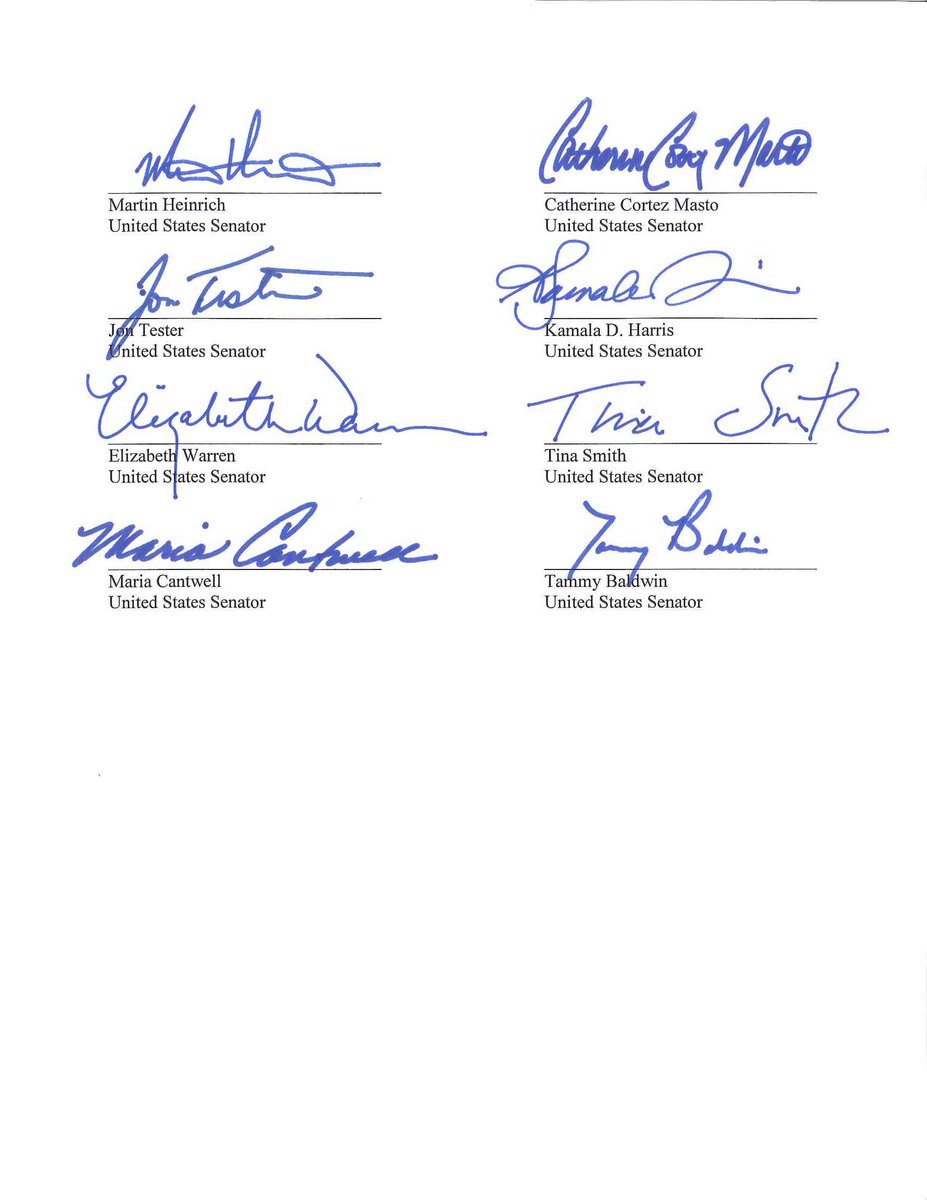 Martin Heinrich
United States Senator
Catherine Cortez Masto
United States Senator
Jon Tester
Jon Tester
United States Senator
Kamala
Kamala D. Harris
United States Senator
Elizabeth Warren
Elizabeth Warren
United States Senator
Tina Smith
Tina Smith
United States Senator
Maria Cantwell
Maria Cantwell
United States Senator
Tammy Baldwin
Tammy Baldwin
United States Senator